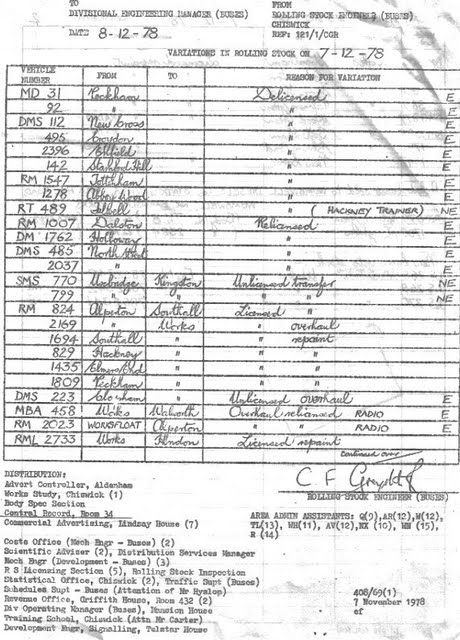 TO
DIVISIONAL ENGINEERING MANAGER (BUSES)
DATE 8-12-78
FROM
ROLLING STOCK ENGINEER (BUSES)
CHISWICK
REF: 121/1/CGR
VARIATIONS IN ROLLING STOCK ON 7-12-78
VEHICLE NUMBER FROM TO REASON FOR VARIATION
MD 31 Peckham Delicensed E
92 " " E
DMS 112 New Cross " E
495 Croydon " E
2396 Enfield " E
142 Stamford Hill " E
RM 1547 Tottenham " E
1278 Abbey Wood " E
RT 489 " (HACKNEY TRAINER) NE
RM 1007 Dalston Relicensed E
DM 1762 Holloway " E
DMS 485 North Street " E
2037 " " E
SMS 770 Uxbridge Kingston Unlicensed transfer NE
799 " " " " NE
RM 824 Alperton Southall Licensed " E
2169 " Works " overhaul E
1694 Southall " " repaint E
829 Hackney " " " E
1435 Elmers End " " " E
1809 Peckham " " " E
DMS 223 " Unlicensed overhaul E
MBA 458 Works Walworth Overhaul relicensed RADIO E
RM 2023 WORKSFLOAT Alperton " " RADIO E
RML 2733 Works Hendon Licensed repaint E
continued over
DISTRIBUTION:
Advert Controller, Aldenham
Works Study, Chiswick (1)
Body Spec Section
Central Record, Room 34
Commercial Advertising, Lindsay House (7)
Costs Office (Mech Engr - Buses) (2)
Scientific Adviser (2), Distribution Services Manager
Mech Engr (Development - Buses) (3)
R S Licensing Section (5), Rolling Stock Inspection
Statistical Office, Chiswick (2), Traffic Supt (Buses)
Schedules Supt - Buses (Attention of Mr Hyslop)
Revenue Office, Griffith House, Room 432 (2)
Div Operating Manager (Buses), Mansion House
Training School, Chiswick (Attn Mr Carter)
Development Engr, Signalling, Telstar House
C F
ROLLING STOCK ENGINEER (BUSES)
AREA ADMIN ASSISTANTS: Q(9), AR(12), W(12),
TL(13), WH(11), AV(12), NX (10), WN (15),
R (14)
408/69(1)
7 November 1978
ef